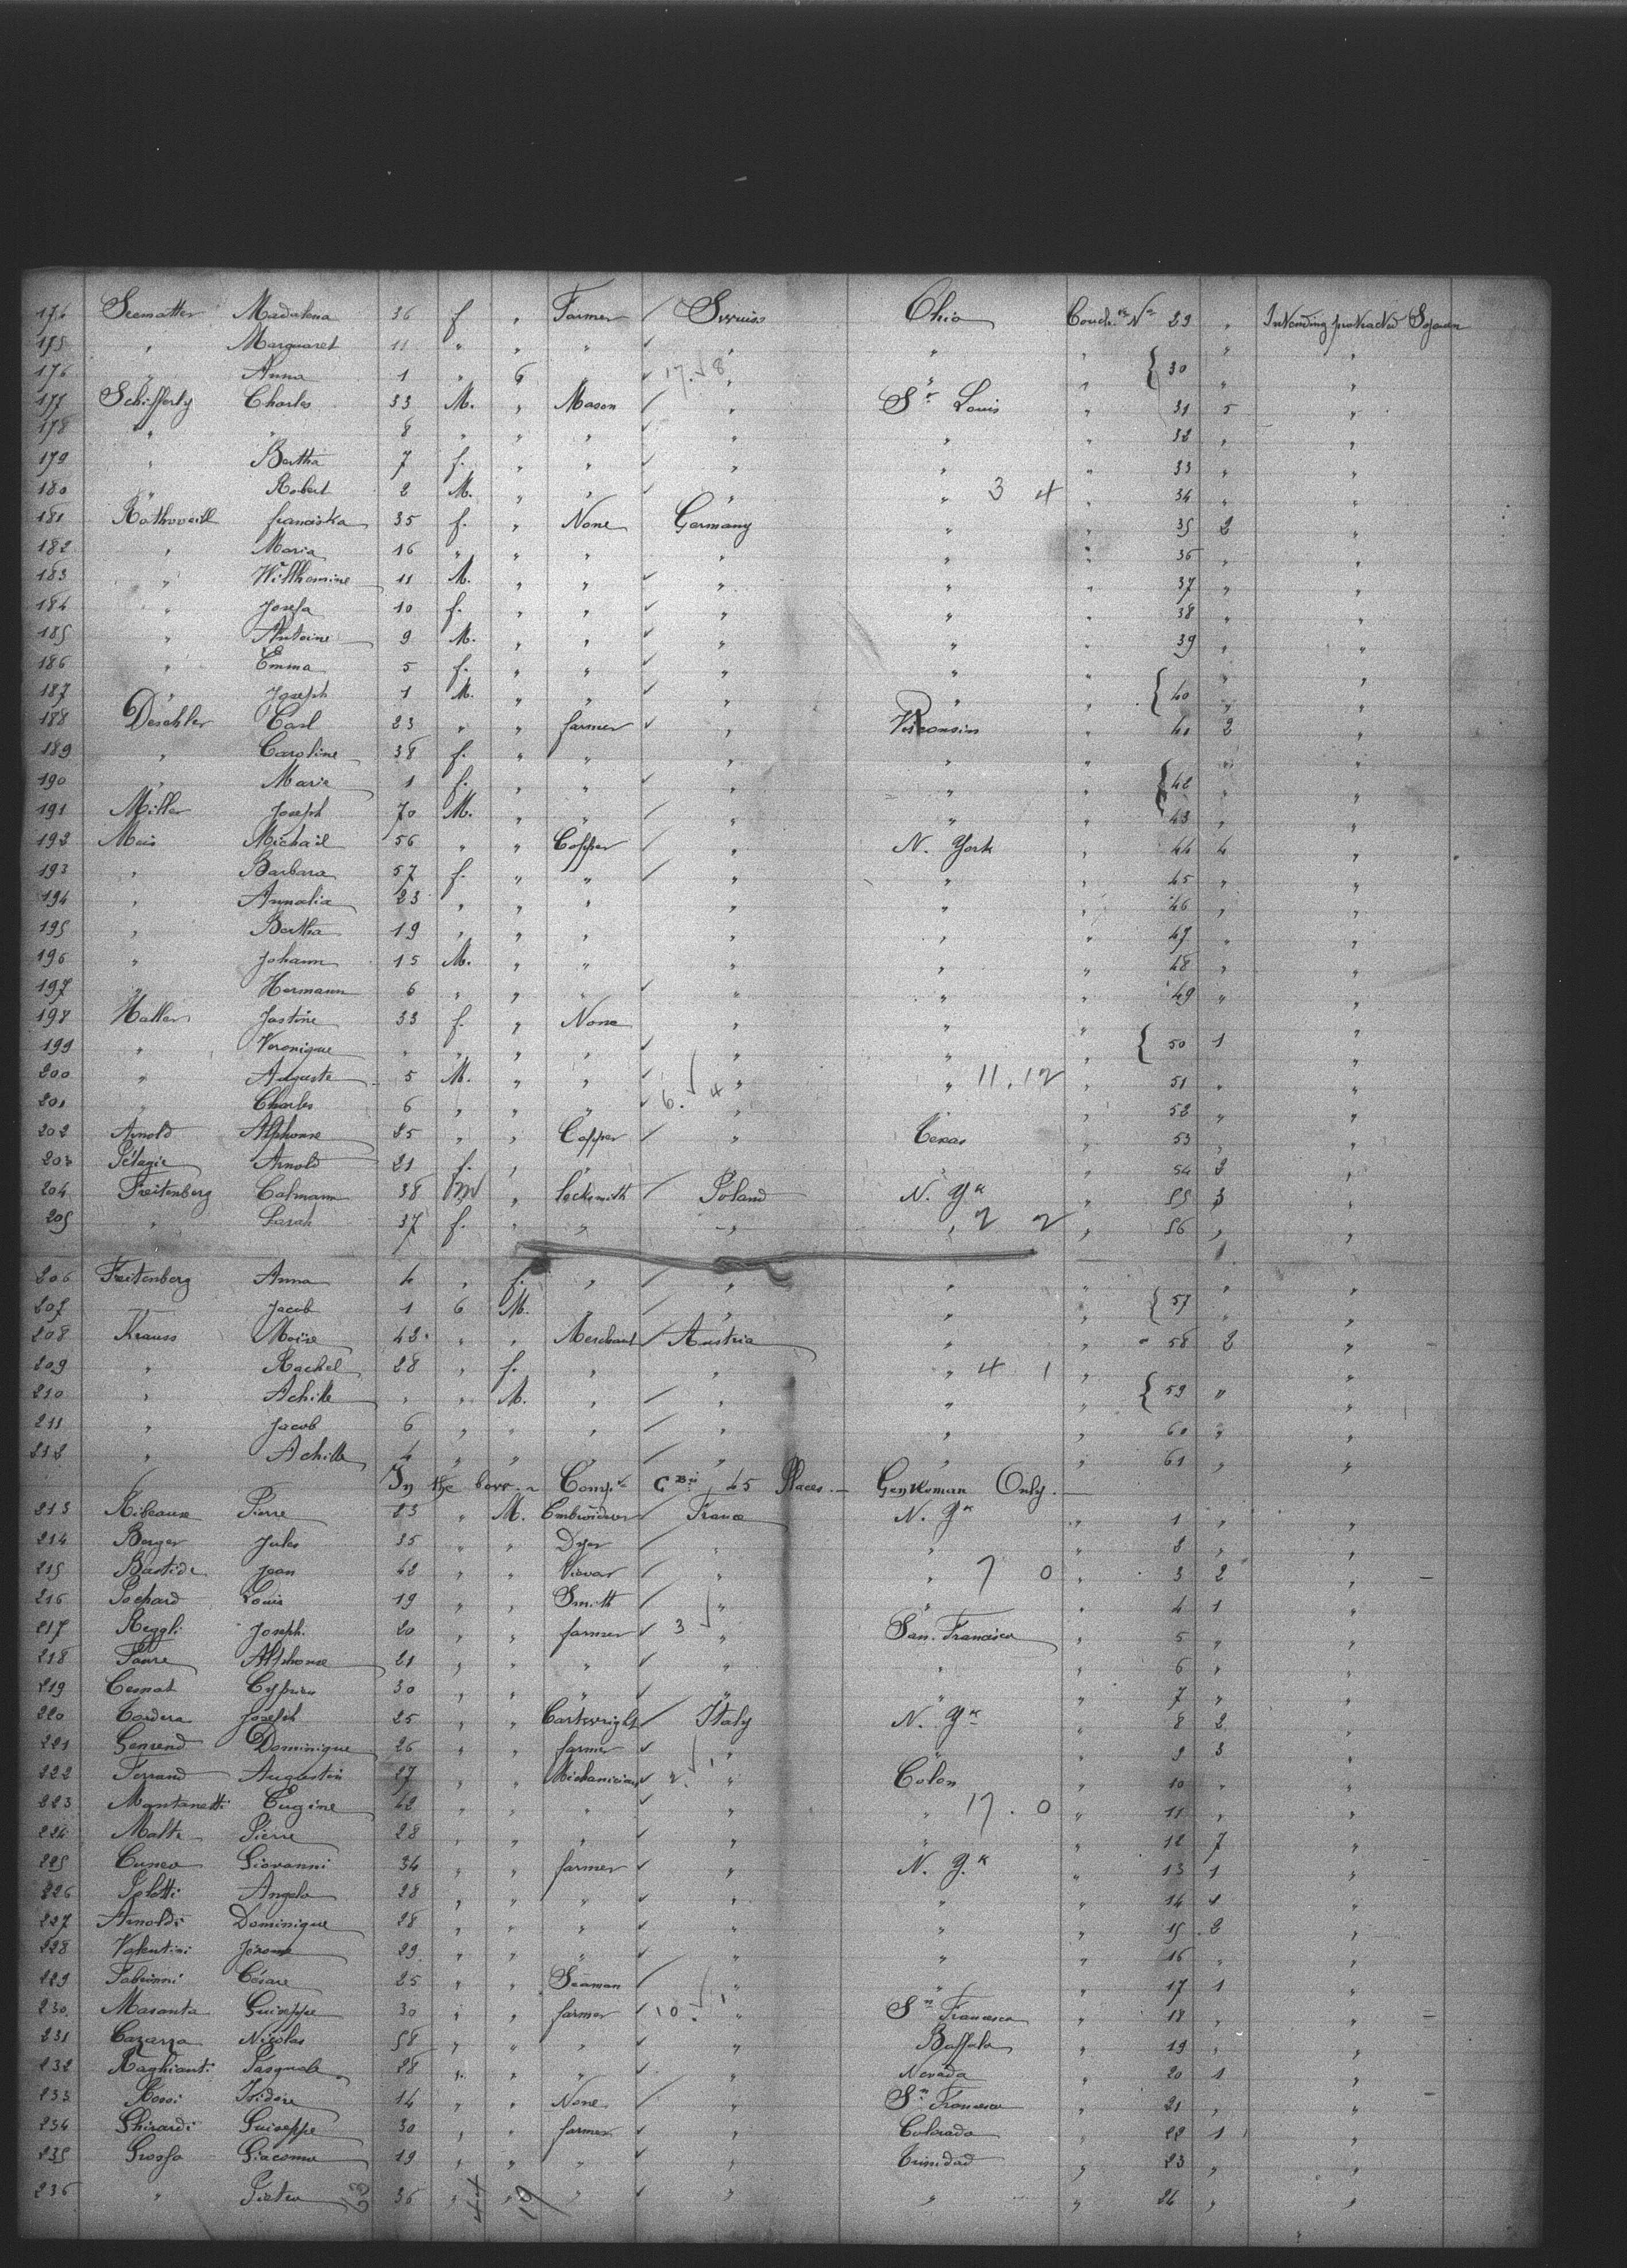 174 Seematter Madalena 36 f " Farmer Swuiss Ohio Couch.tte N° 29 " Intending protracted Sojourn
175 " Marguaret 11 " " " " " " " "
176 " Anna 1 " 6 " 17. 8 " " " { 30 " "
177 Schifferly Charles 33 M. " Mason " St Louis " 31 5 "
178 " " 8 " " " " " " 32 " "
179 " Bertha 7 f. " " " " " 33 " "
180 " Robert 2 M. " " " " 3 4 " 34 " "
181 Rothweill franciska 35 f. " None Germany " " 35 2 "
182 " Maria 16 " " " " " " 36 " "
183 " Willhamine 11 M. " " " " " 37 " "
184 " Josefa 10 f. " " " " " 38 " "
185 " Antoine 9 M. " " " " " 39 " "
186 " Emma 5 f. " " " " " " "
187 " Joseph 1 M. " " " " " { 40 " "
188 Deschler Carl 23 " " farmer " Visconsin " 41 2 "
189 " Caroline 38 f. " " " " " " "
190 " Marie 1 f. " " " " " { 42 " "
191 Miller Joseph 70 M. " " " " " 43 " "
192 Meis Michaël 56 " " Copper " N. York " 44 4 "
193 " Barbara 57 f. " " " " " 45 " "
194 " Annalia 23 " " " " " " 46 " "
195 " Bertha 19 " " " " " " 47 " "
196 " Johann 15 M. " " " " " 48 " "
197 " Hermann 6 " " " " " " 49 " "
198 Haller Justine 33 f. " None " " " "
199 " Veronique " " " " " " " { 50 1 "
200 " Auguste 5 M. " " " " 11.12 " 51 " "
201 " Charles 6 " " " 6. 4 " " " 52 " "
202 Arnold Alphonse 25 " " Copper " Texas " 53 " "
203 Pélagie Arnold 21 f. " " " " " 54 2 "
204 Freitenberg Calmann 38 M " Locksmith Poland N. Yk " 55 3 "
205 " Sarah 37 f. " " " " 2 2 " 56 " "
206 Freitenberg Anna 4 " f. " " " " "
207 " Jacob 1 6 M. " " " " { 57 " "
208 Krauss Moïse 42 " " Merchant Austria " " 58 2 "
209 " Rachel 28 " f. " " " 4 1 " "
210 " Achille " " M. " " " " { 59 " "
211 " Jacob 6 " " " " " " 60 " "
212 " Achille 4 " " " " " " 61 " "
In the Comp.t 45 Places. — Gentleman Only. —
213 Ribeaux Pierre 23 " M. Embroiderer France N. Yk " 1 " "
214 Berger Jules 35 " " Dyer " " " 2 " "
215 Bastide Jean 42 " " " " 7 0 " 3 2 "
216 Pochard Louis 19 " " Smith " " " 4 1 "
217 Reggli Joseph 20 " " farmer 3 " San. Francisco " 5 " "
218 Faure Alphonse 21 " " " " " " 6 " "
219 30 " " " " " " 7 " "
220 Cordera Joseph 25 " " Cartwright Italy N. Yk " 8 2 "
221 Dominique 26 " " farmer " " " 9 3 "
222 Ferrand Augustin 27 " " Michanician 2. 1 " Colon " 10 " "
223 Montanetti Eugine 42 " " " " " 17. 0 " 11 " "
224 Malte Pierre 28 " " " " " " 12 7 "
225 Cuneo Giovanni 34 " " farmer " N. Y.k " 13 1 "
226 Angelo 28 " " " " " " 14 " "
227 Arnoldi Dominique 28 " " " " " " 15 2 "
228 Valentini Jérome 29 " " " " " " 16 " "
229 Césare 25 " " Seaman " " " 17 1 "
230 Masanta Guiseppe 30 " " farmer 10. 1 " Sn Francisco " 18 " "
231 Cazarra Nicolas 58 " " " " Buffalo " 19 " "
232 Raghianti Pasquale 28 " " " " Nevada " 20 1 "
233 Rossi Isidore 14 " " None " Sn Francisco " 21 " "
234 Ghirardi Guiseppe 30 " " farmer " Colorado " 22 1 "
235 Grosso Giacomo 19 " " " " Trinidad " 23 " "
236 " Pietro 36 " " " " " " 24 " "
23 44 19